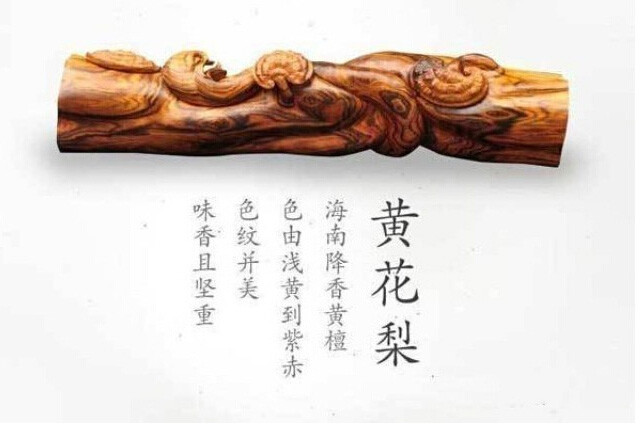 黄花梨
海南降香黄檀
色由浅黄到紫赤
色纹并美
味香且坚重